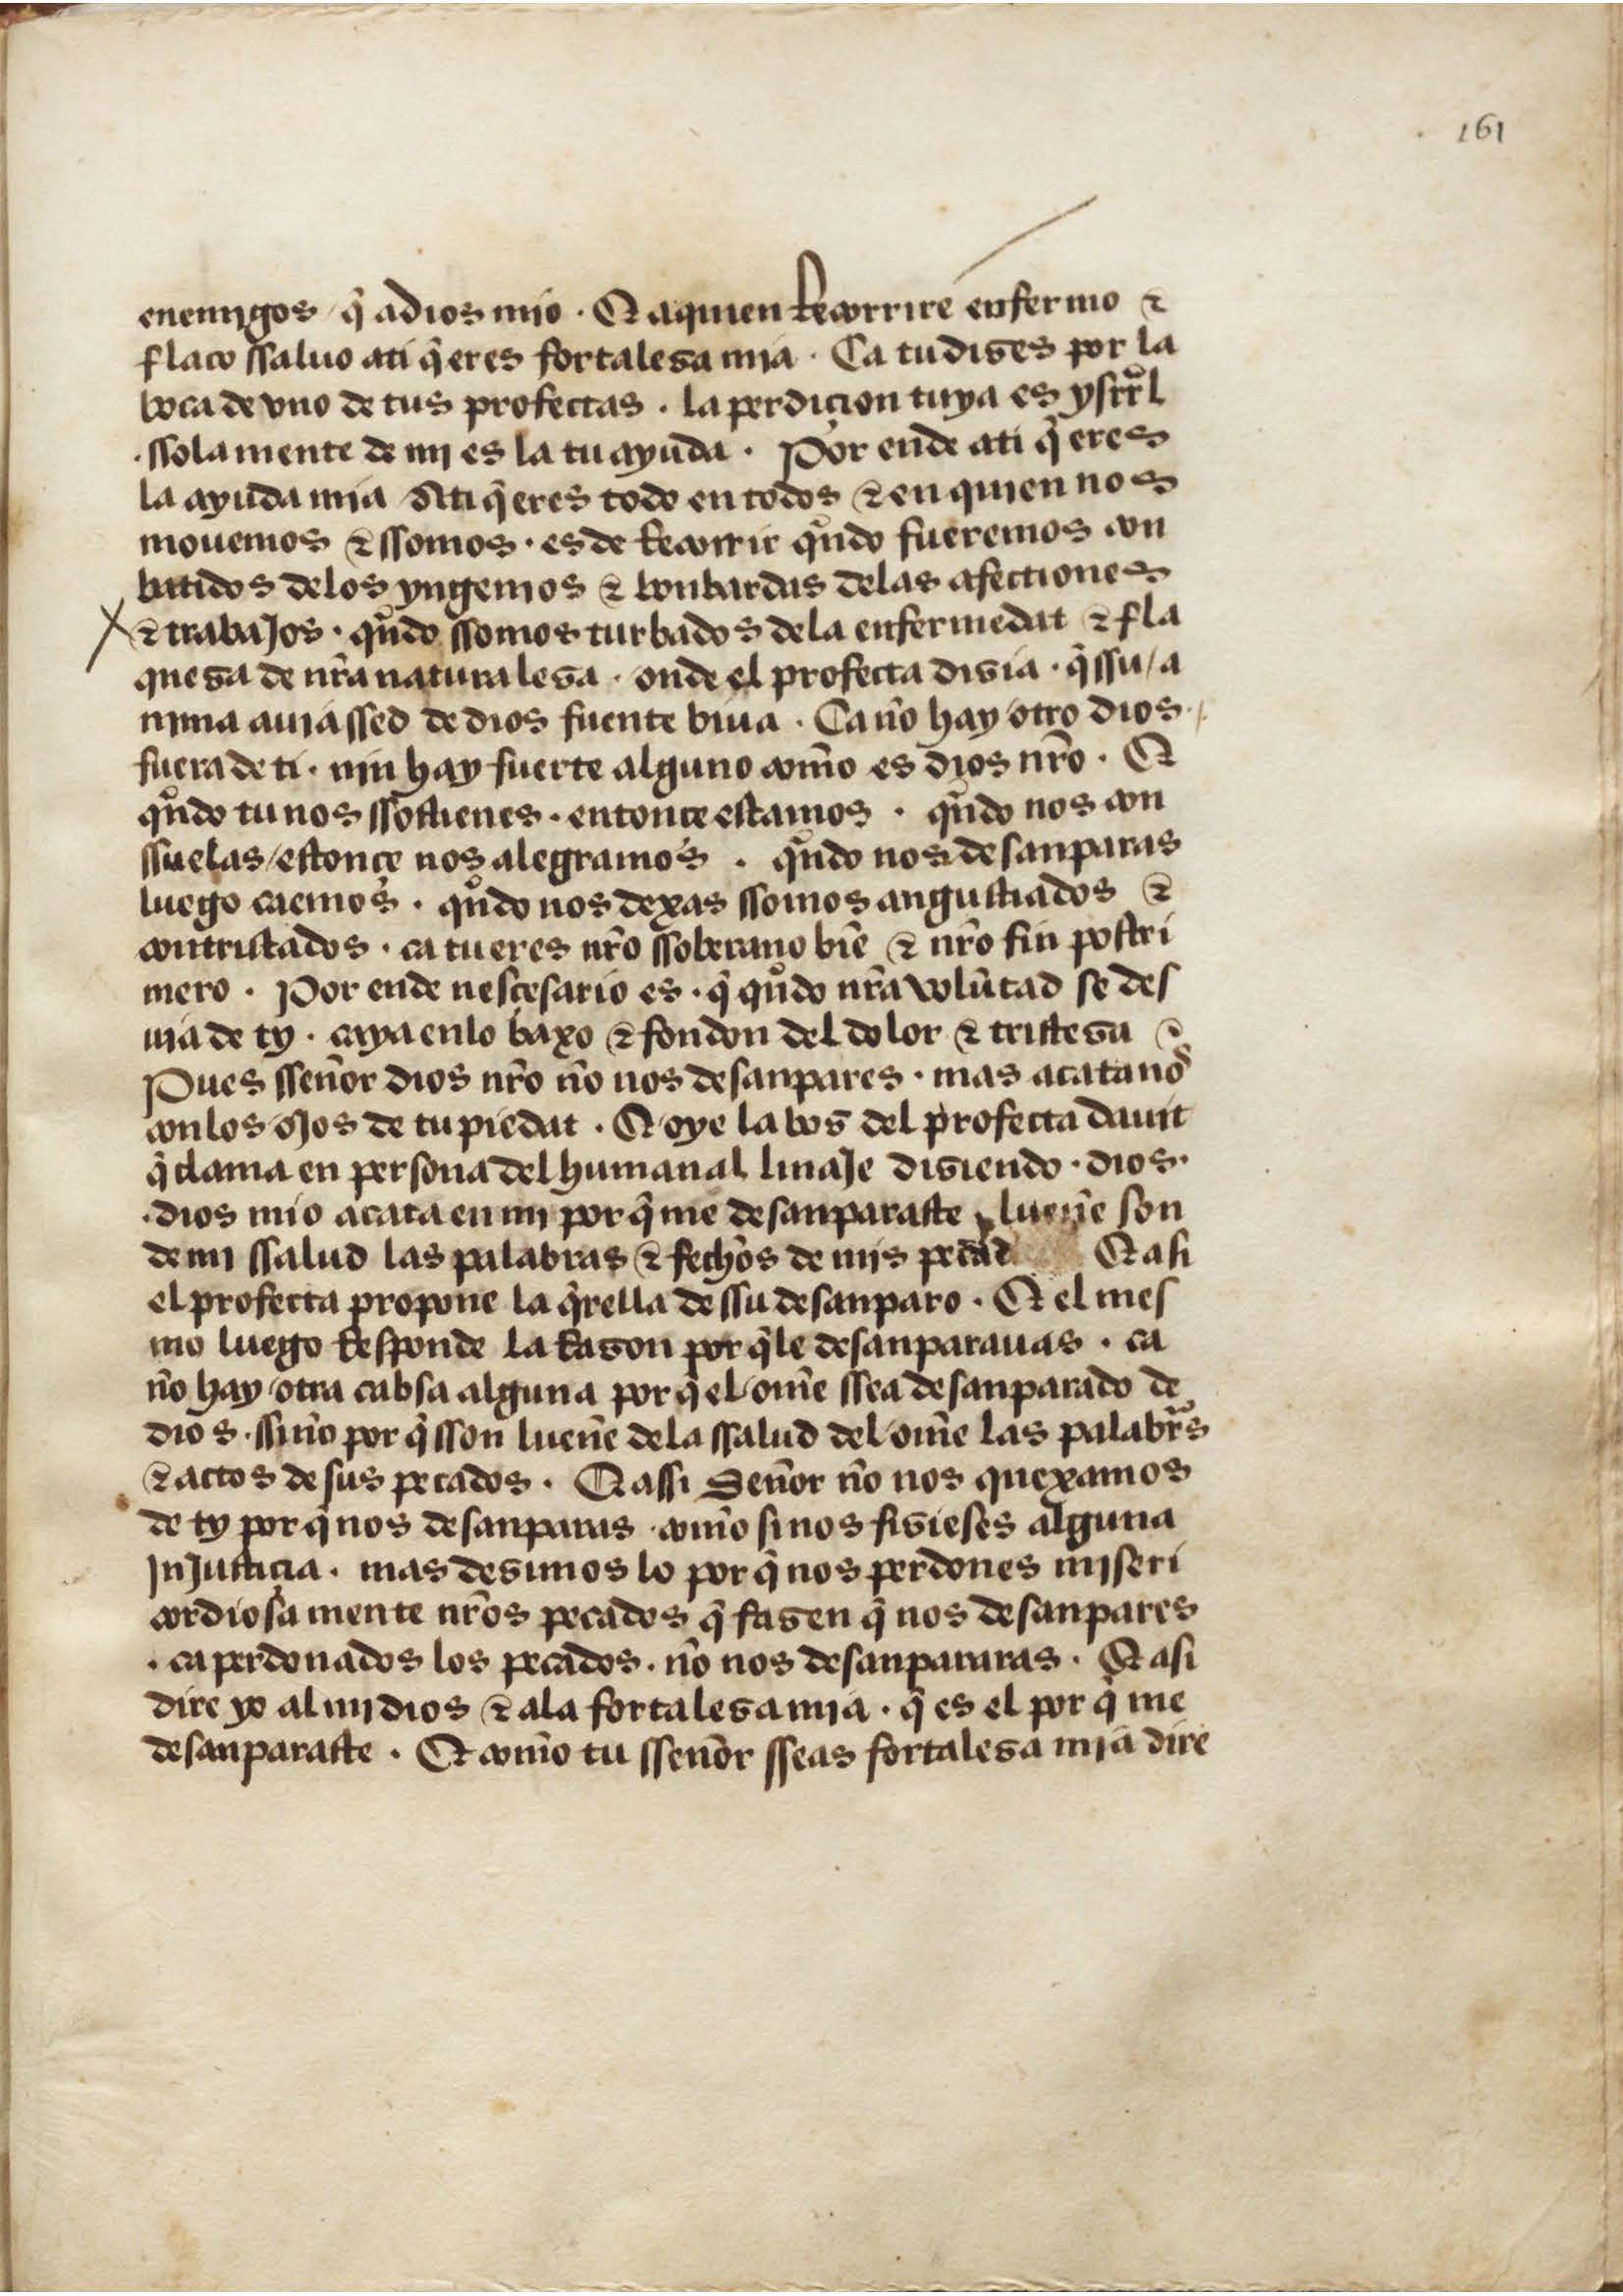 161
enemigos / q̃ a dios mio · Et a quien Recorrire enfermo ⁊
flaco ssaluo a ti q̃ eres fortalesa mia · Ca tu dises por la
boca de vno de tus profectas · la perdicion tuya es ysrrl̃
· ssolamente de mi es la tu ayuda · Por ende a ti q̃ eres
la ayuda mia Ati q̃ eres todo en todos ⁊ en quien nos
mouemos ⁊ ssomos · es de Recorrir qũdo fueremos con
batidos delos yngenios ⁊ lonbardas delas afectiones
⁊ trabaJos · qũdo ssomos turbados dela enfermedat ⁊ fla
quesa de nr̃a naturalesa · onde el profecta disia · q̃ ssu / a
nima auia ssed de dios fuente biua · Ca nõ hay otro dios
fuera de ti · nin hay fuerte alguno com̃o es dios nr̃o · Et
qũdo tu nos ssostienes · entonce estamos · qũdo nos con
ssuelas / estonçe nos alegramos · qũdo nos desanparas
luego caemos · qũdo nos dexas ssomos angustiados ⁊
contristados · ca tu eres nr̃o ssoberano biẽ ⁊ nr̃o fin postri
mero · Por ende nesçesario es · q̃ qũdo nr̃a volũtad se des
uia de ty · caya enlo baxo ⁊ fondon del dolor ⁊ tristesa
Pues sseñor dios nr̃o nõ nos desanpares · mas acatanos
con los oJos de tu piedat · Et oye la bos del profecta dauit
q̃ clama en persona del humanal linaJe disiendo · dios ·
· dios mio acata en mi por q̃ me desanparaste lueñe son
de mi ssalud las palabras ⁊ fechos de mis pecad Et asi
el profecta propone la q̃rella de ssu desanparo · Et el mes
mo luego Responde la Rason por q̃ le desanparauas · ca
nõ hay otra cabsa alguna por q̃ el om̃e ssea desanparado de
dios · ssinõ por q̃ sson lueñe dela ssalud del om̃e las palabr̃s
⁊ actos de sus pecados · Et assi Señor nõ nos quexamos
de ty por q̃ nos desanparas · com̃o si nos fisieses alguna
InJusticia · mas desimos lo por q̃ nos perdones miseri
cordiosa mente nr̃os pecados q̃ fasen q̃ nos desanpares
· ca perdonados los pecados · nõ nos desanpararas · Et asi
dire yo al mi dios ⁊ ala fortalesa mia · q̃ es el por q̃ me
desanparaste · Et com̃o tu sseñor sseas fortalesa mia dire